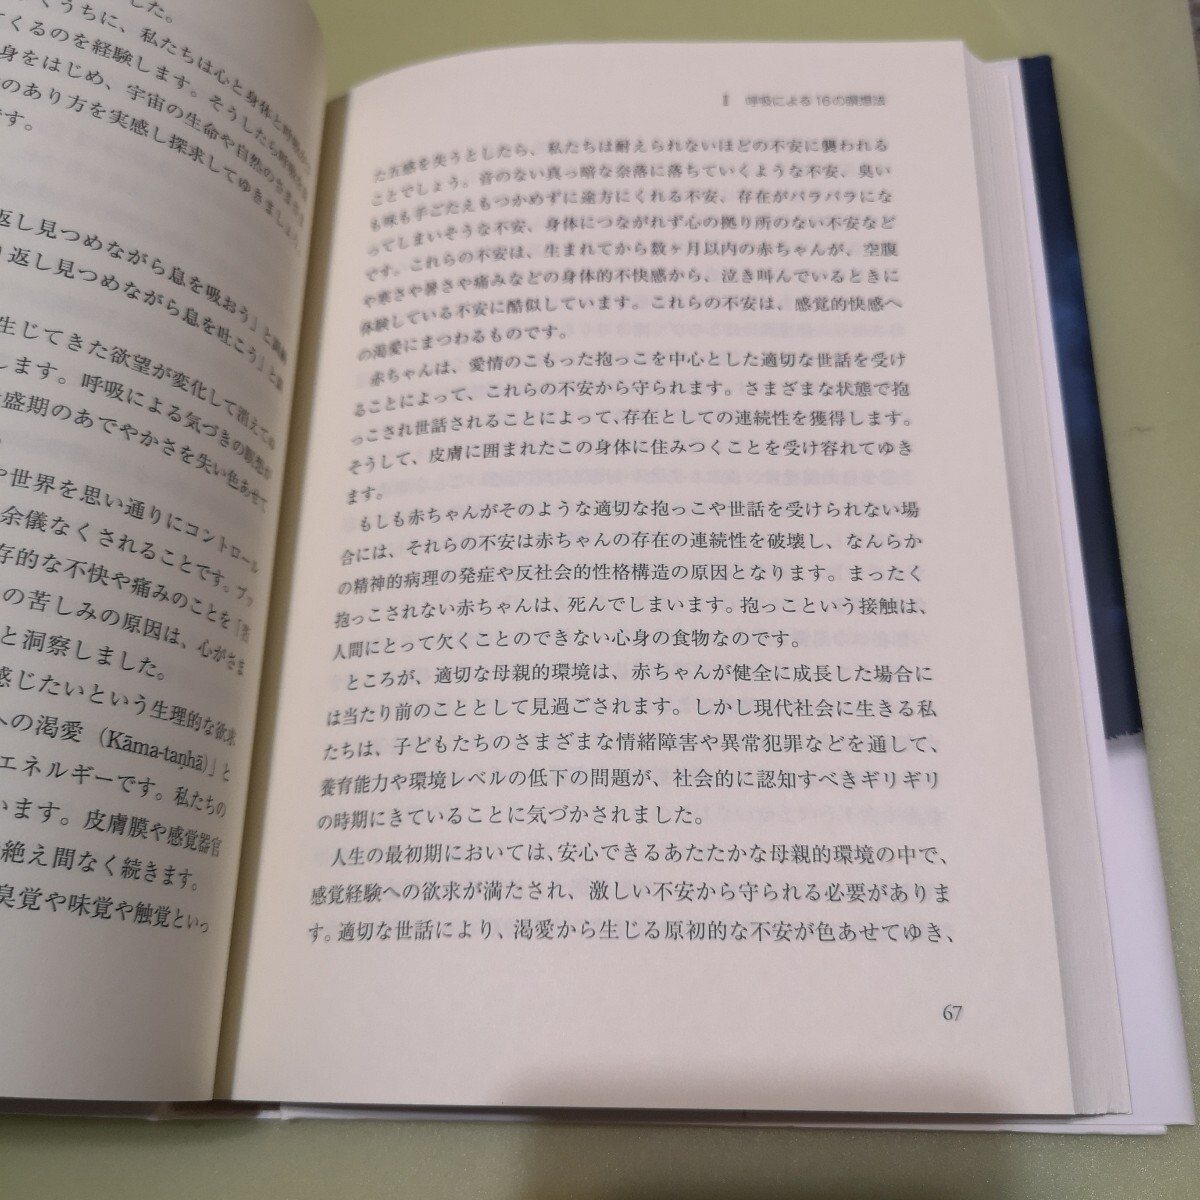 した。
くうちに、私たちは心と身体と
てくるのを経験します。そうしたら
身をはじめ、宇宙の生命や自然のさま
のあり方を実感し探求してゆきましょう。
です。
返し見つめながら息を吸おう」と
り返し見つめながら息を吐こう」と
生じてきた欲望が変化して消えてゆ
します。呼吸による気づきの瞑想が
盛期のあでやかさを失い色あせて
や世界を思い通りにコントロール
余儀なくされることです。ブッ
存的な不快や痛みのことを「苦
の苦しみの原因は、心がさま
と洞察しました。
感じたいという生理的な欲求
への渇愛（Kāma-taṇhā）」と
エネルギーです。私たちの
います。皮膚膜や感覚器官
絶え間なく続きます。
臭覚や味覚や触覚といっ
II 呼吸による16の瞑想法
た五感を失うとしたら、私たちは耐えられないほどの不安に襲われる
ことでしょう。音のない真っ暗な奈落に落ちていくような不安、臭い
も味も手ごたえもつかめずに途方にくれる不安、存在がバラバラにな
ってしまいそうな不安、身体につながれず心の拠り所のない不安など
です。これらの不安は、生まれてから数ヶ月以内の赤ちゃんが、空腹
や寒さや暑さや痛みなどの身体的不快感から、泣き叫んでいるときに
体験している不安に酷似しています。これらの不安は、感覚的快感へ
の渇愛にまつわるものです。
赤ちゃんは、愛情のこもった抱っこを中心とした適切な世話を受け
ることによって、これらの不安から守られます。さまざまな状態で抱
っこされ世話されることによって、存在としての連続性を獲得します。
そうして、皮膚に囲まれたこの身体に住みつくことを受け容れてゆき
ます。
もしも赤ちゃんがそのような適切な抱っこや世話を受けられない場
合には、それらの不安は赤ちゃんの存在の連続性を破壊し、なんらか
の精神的病理の発症や反社会的性格構造の原因となります。まったく
抱っこされない赤ちゃんは、死んでしまいます。抱っこという接触は、
人間にとって欠くことのできない心身の食物なのです。
ところが、適切な母親的環境は、赤ちゃんが健全に成長した場合に
は当たり前のこととして見過ごされます。しかし現代社会に生きる私
たちは、子どもたちのさまざまな情緒障害や異常犯罪などを通して、
養育能力や環境レベルの低下の問題が、社会的に認知すべきギリギリ
の時期にきていることに気づかされました。
人生の最初期においては、安心できるあたたかな母親的環境の中で、
感覚経験への欲求が満たされ、激しい不安から守られる必要がありま
す。適切な世話により、渇愛から生じる原初的な不安が色あせてゆき、
67